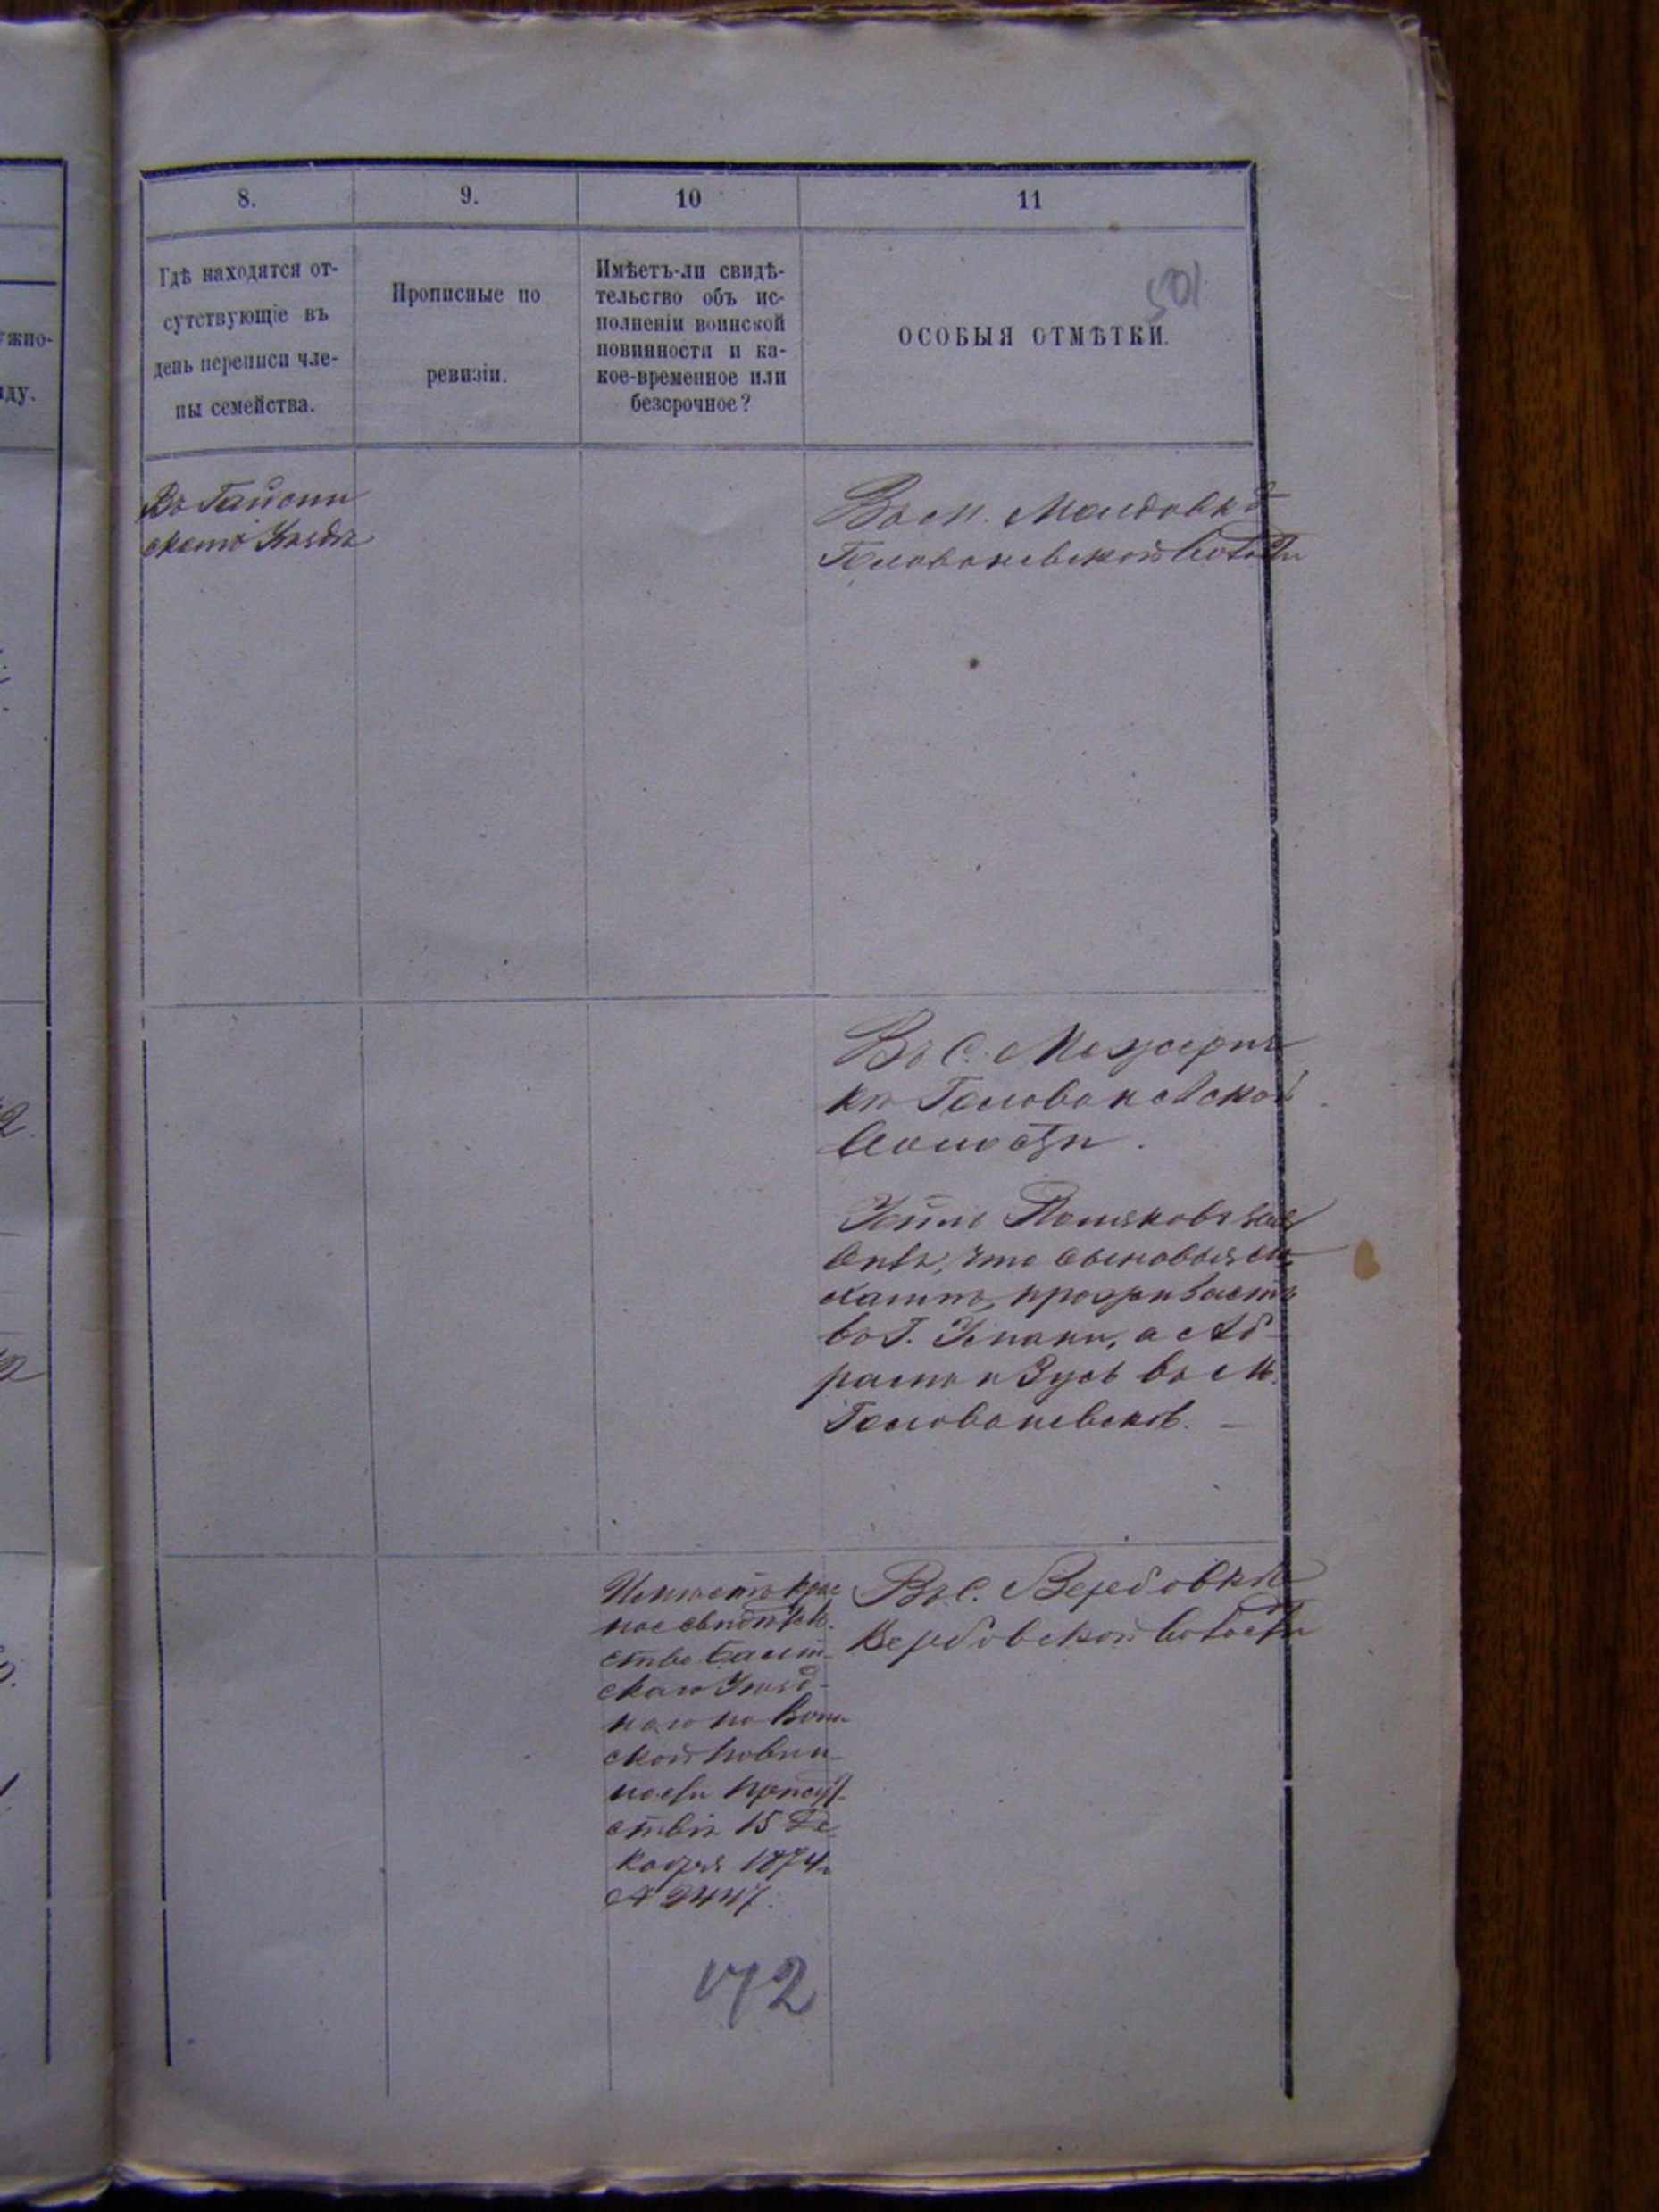 8.
9.
10
11
Гдѣ находятся от-
сутствующіе въ
день переписи чле-
ны семейства.
Прописные по
ревизіи.
Имѣетъ-ли свидѣ-
тельство объ ис-
полненіи воинской
повинности и ка-
кое-временное или
безсрочное?
501
ОСОБЫЯ ОТМѢТКИ.
ужно-
иду.
Въ Гайсин
скомъ Уѣздѣ
Въ м. Молдовкѣ
Голованевской волости
Въ С. Межерич
кѣ Голованевской
волости.
Поляковъ зая
вилъ, что сыновья
проживаетъ
въ Г. Умани, а Аб
рамъ и Зусь въ м.
Голованевскѣ. —
Имѣетъ крас
ное свидѣтель
ство Балт-
скаго Уѣзд-
наго по Воин
ской повин-
ности присут-
ствія 15 Де
кабря 1874 г.
№ 2447.
Въ С. Вербовкѣ
Вербовской волости
172